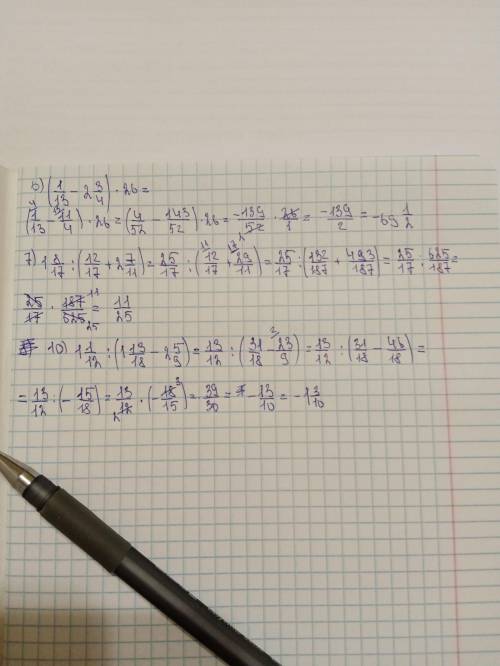 6) (1/13 - 2 3/4) · 26 =
(1/13 - 11/4) · 26 = (4/52 - 143/52) · 26 = -139/52 · 26/1 = -139/2 = -69 1/2
7) 1 8/17 : (12/17 + 2 7/11) = 25/17 : (12/17 + 29/11) = 25/17 : (132/187 + 493/187) = 25/17 : 625/187 =
25/17 · 187/625 = 11/25
10) 1 1/12 : (1 13/18 - 2 5/9) = 13/12 : (31/18 - 23/9) = 13/12 : (31/18 - 46/18) =
= 13/12 : (-15/18) = 13/12 · (-18/15) = 39/30 = -13/10 = -1 3/10